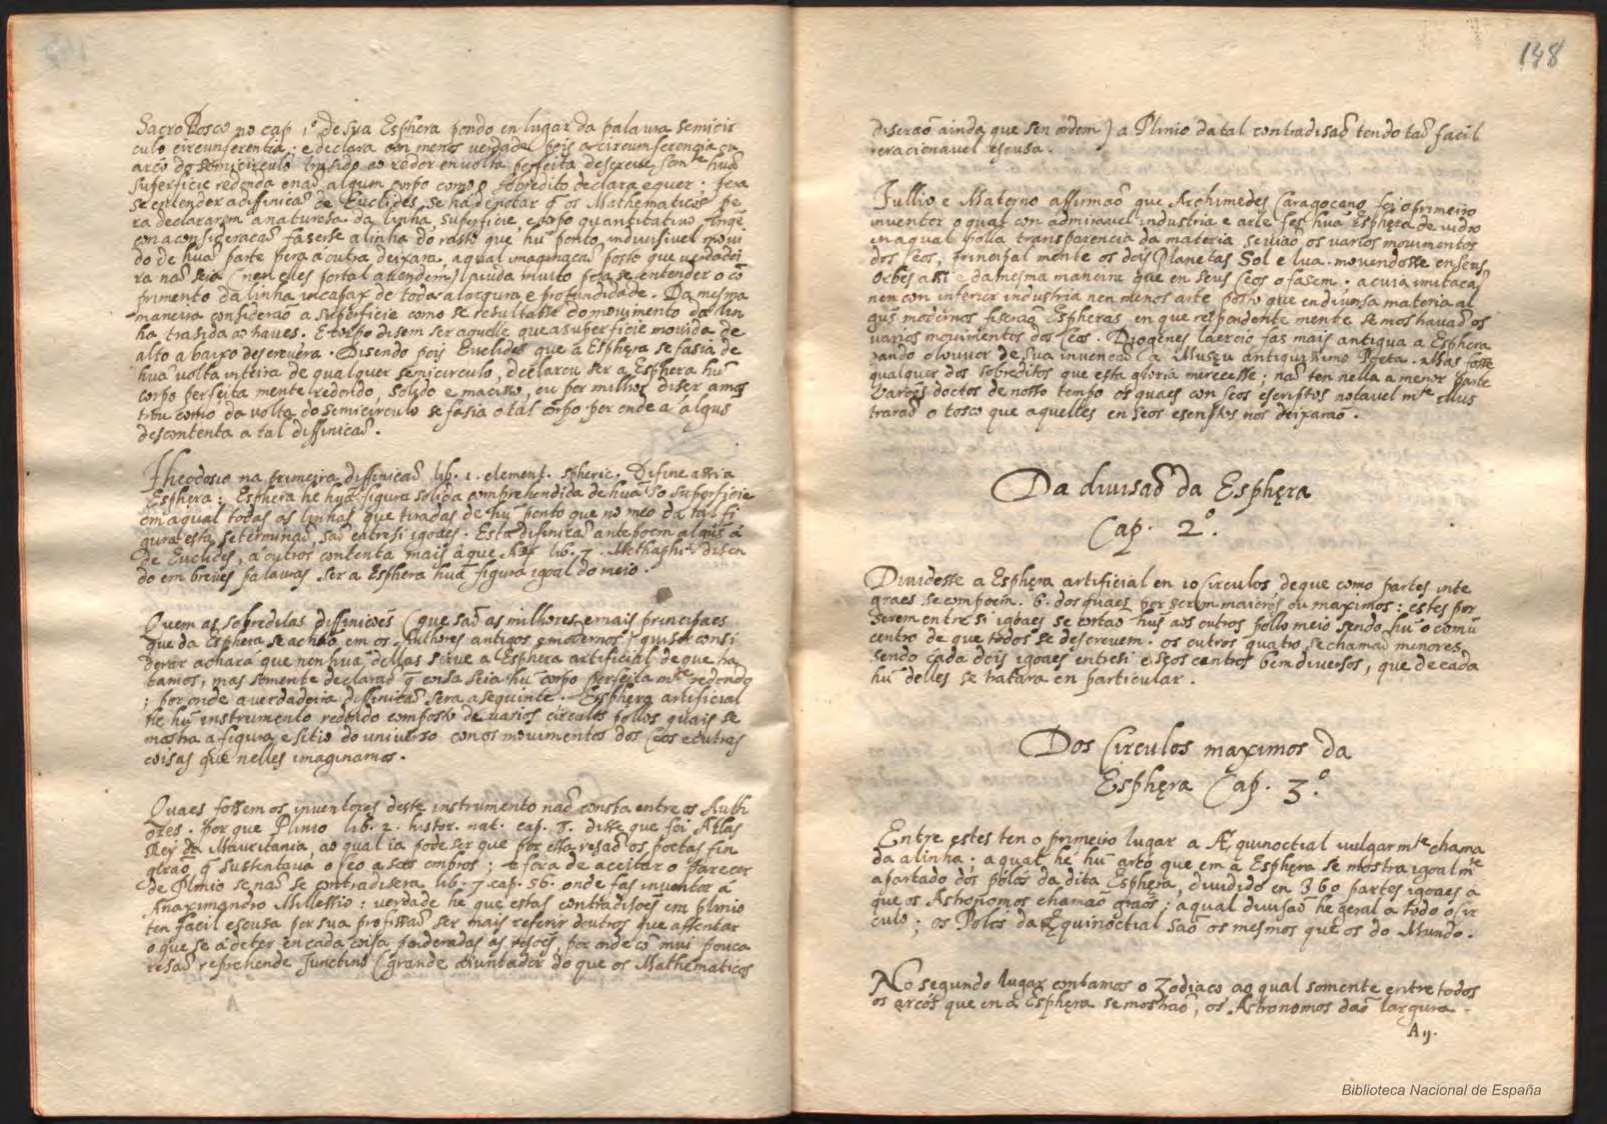 Sacro Bosco no cap 1º de sua Esphera pondo en lugar da palavra semicir
culo circunferentia; e declara con menos verdade pois a circumferencia ou
arco do semicirculo trasido ao redor en volta perfeita descreve somte huã
superficie redonda e naõ algum corpo como o sobredito declara e quer; pera
se entender a diffinicaõ de Euclides, se ha de notar q̃ os Mathematicos pe
ra declararem a naturesa da linha, superficie, e corpo quantitativo
con a consideracaõ faserse a linha do rasto que hũ ponto indivisivel movi
do de huã parte pera a outra deixara, a qual imaginacaõ posto que verdadei
ra naõ seia (nen elles por tal a tendem) aiuda muito pera se entender o cõ
primento da linha incapax de toda a largura e profundidade. Da mesma
maneira consideraõ a superficie como se resultasse do movimento da lin
ha trasida ao traves. E corpo disem ser aquelle que a superficie movida de
alto a baixo descrevera. Disendo pois Euclides que a Esphera se fasia de
huã volta inteira de qualquer semicirculo, declarou ser a Esphera hũ
corpo perfeita mente redondo, solido e macisso, ou por milhor diser amos
trou como da volta do semicirculo se fasia o tal corpo por onde a algũs
descontenta a tal diffinicaõ.
Theodosio na primeira diffinicaõ lib. 1. element. spheric. Difine assi a
Esphera: Esphera he huã figura solida comprehendida de huã so superficie
em a qual todas as linhas que tiradas de hũ ponto que no meo da tal fi
gura esta, se terminaõ, saõ entresi igoaes. Esta difinicaõ antepoem algũs á
de Euclides, a outros contenta mais a que lib. 7. Methaphi. disen
do em breves palavras ser a Esphera huã figura igoal do meio.
Quem as sobreditas diffinicoẽs (que saõ as milhores e mais principaes
que da Esphera se achaõ em os Authores antigos e modernos) quiser consi
derar achará que nenhuã dellas serve a Esphera artificial de que tra
tamos, mas somente declaraõ q̃ cousa seia hũ corpo perfeita mte redondo
; por onde a verdadeira diffinicaõ sera a seguinte. Esphera artificial
he hũ instrumento redondo composto de varios circulos pollos quais se
mostra a figura e sitio do universo con os movimentos dos Ceos e outras
coisas que nelles imaginamos.
Quaes fossem os inventores deste instrumento naõ consta entre os Auth
ores. por que Plinio lib. 2. histor. nat. cap. 8. disse que foi Atlas
Rey da Mauritania, ao qual ia pode ser que por essa resaõ os poetas fin
giraõ q̃ sustentava o ceo a seos ombros; e fora de aceitar o parecer
de Plinio se naõ se contradisera lib. 7. cap. 56. onde fas inventor á
Anaximandro Millessio: verdade he que estas contradisoẽs em plinio
ten facil escusa por sua profissaõ ser mais referir doutros que assentar
o que se á de ter en cada coisa ponderadas as rasoẽs, por onde cõ mui pouca
resaõ reprehende Junctino (grande aiuntador do que os Mathematicos
148
diseraõ ainda que sen ordem) a Plinio da tal contradisaõ tendo taõ facil
e racionavel escusa.
Tullio e Materno affirmaõ que Archimedes Caragocano foi o primeiro
inventor o qual con admiravel industria e arte fes huã Esphera de vidro
en a qual polla transparencia da materia se viaõ os varios movimentos
dos Ceos, principal mente os dois Planetas Sol e lua movendosse en seus
Orbes assi e da mesma maneira que en seus Ceos o fasem; a cuia imitacaõ
nen con inferior industria nen menos arte posto que en diversa materia al
gũs modernos fiseraõ Espheras, en que respondente mente se mostravaõ os
varios movimentos dos Ceos. Diogenes laercio fas mais antiqua a Esphera
dando o louvor de sua invencaõ a Museu antiquissimo Poeta. Mas fosse
qualquer dos sobreditos que esta gloria merecesse; naõ ten nella a menor parte
varoẽs doctos de nosso tempo os quaes con seos escriptos notavel mte illus
traraõ o tosco que aquelles en seos escriptos nos deixaraõ.
Da divisaõ da Esphera
Cap. 2º.
Dividesse a Esphera artificial en 10 Circulos de que como partes inte
graes se compoem. 6. dos quaes por serem maiores ou maximos: estes por
serem entre si igoaes se cortaõ hũs aos outros pollo meio sendo hũ o comũ
centro de que todos se descrevem. os outros quatro se chamaõ menores
sendo cada dois igoaes entresi e seos centros bem diversos, que de cada
hũ delles se tratara en particular.
Dos Circulos maximos da
Esphera Cap. 3º.
Entre estes ten o primeiro lugar a Æquinoctial vulgar mte chama
da a linha; a qual he hũ arco que em a Esphera se mostra igoal mte
apartado dos pólos da dita Esphera, dividido en 360 partes igoaes á
que os Astronomos chamaõ graos; a qual divisaõ he geral a todo o cir
culo; os Polos da Æquinoctial saõ os mesmos que os do Mundo.
No segundo lugar contamos o Zodiaco ao qual somente entre todos
os arcos que en a Esphera se mostraõ, os Astronomos daõ largura.
A ij.
Biblioteca Nacional de España